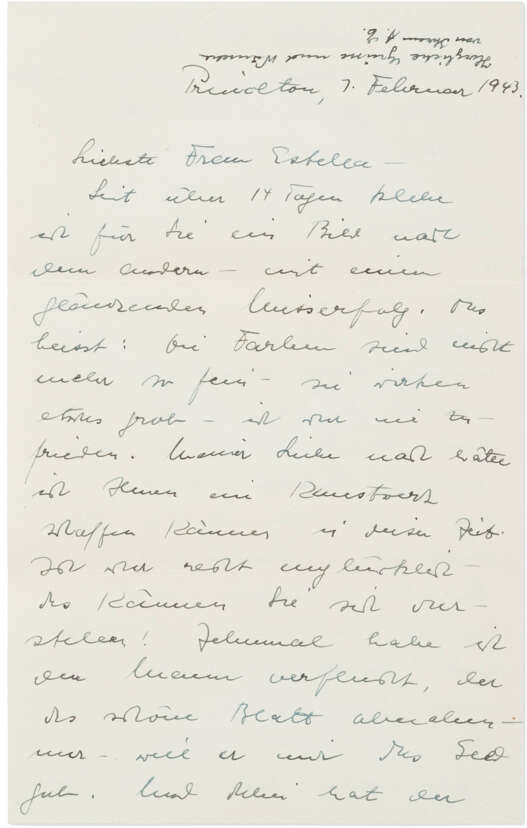 Herzliche Grüsse und Wünsche
von Ihrem A. E.
Princeton, 7. Februar 1943.
Liebste Frau Estella —
Seit über 14 Tagen klebe
ich für Sie ein Bild nach
dem andern — mit einem
glänzenden Misserfolg. Das
heisst: die Farben sind nicht
mehr so fein — sie wirken
etwas grob — ich war nie zu-
frieden. Meiner Liebe nach hätte
ich Ihnen ein Kunstwerk
schaffen können in dieser Zeit.
Ich war recht unglücklich —
das können Sie sich vor-
stellen! Zehnmal habe ich
den Mann verflucht, der
das schöne Blatt abnahm —
nur — weil er mir das Geld
gab. Und dabei hat der